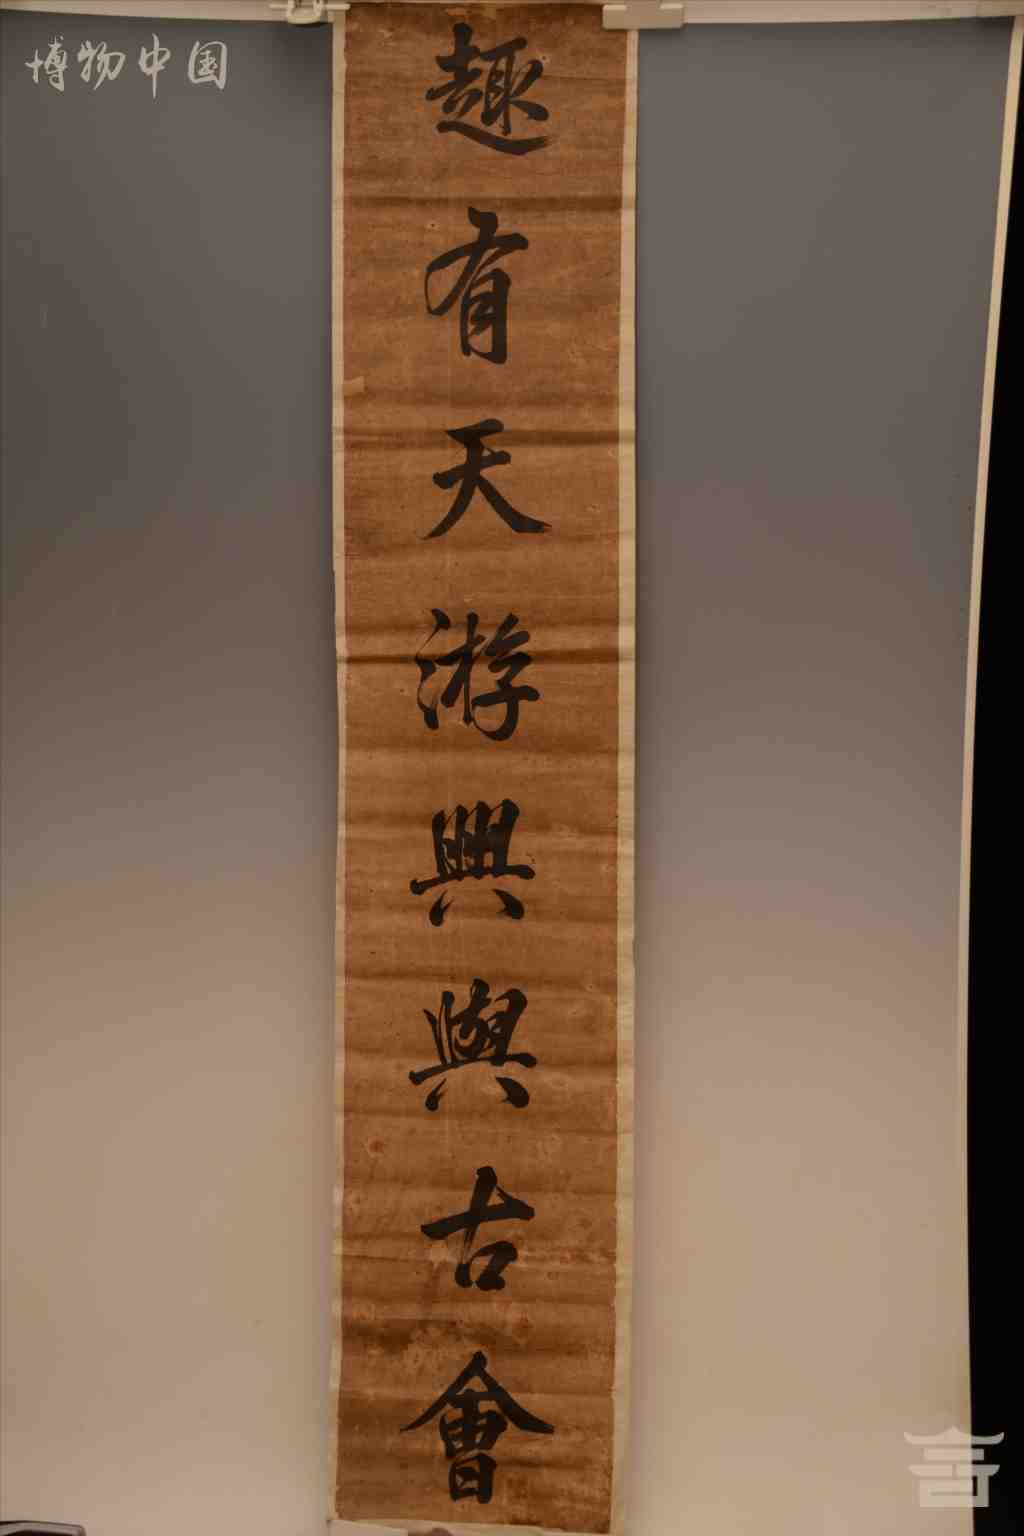 博物中国
趣有天游興與古會